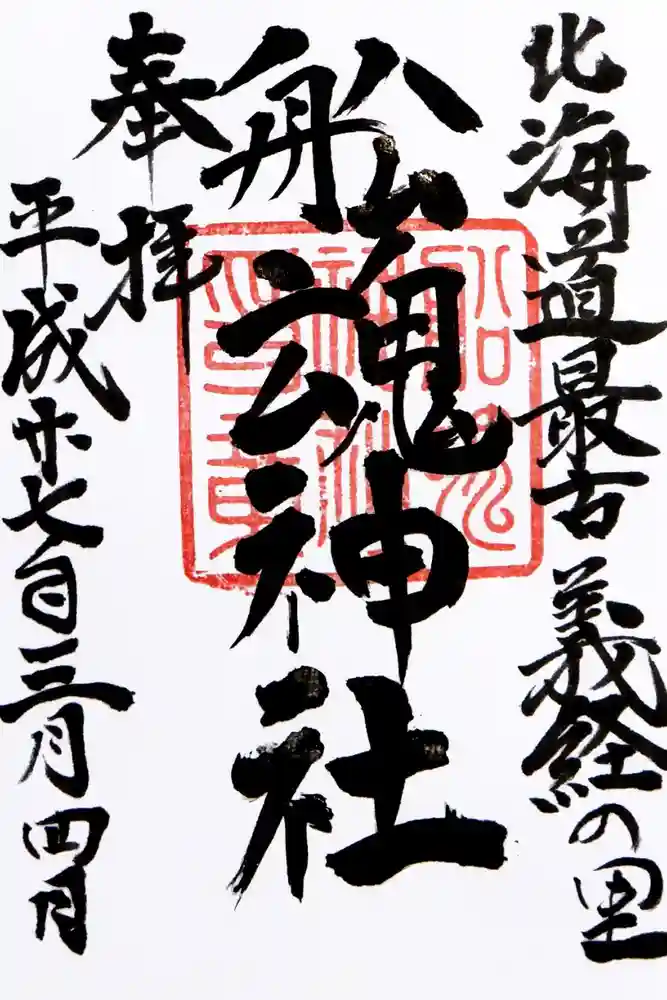 北海道最古 義経の里
船魂神社
奉拝
平成廿七日三月四日
船魂
神社
印章